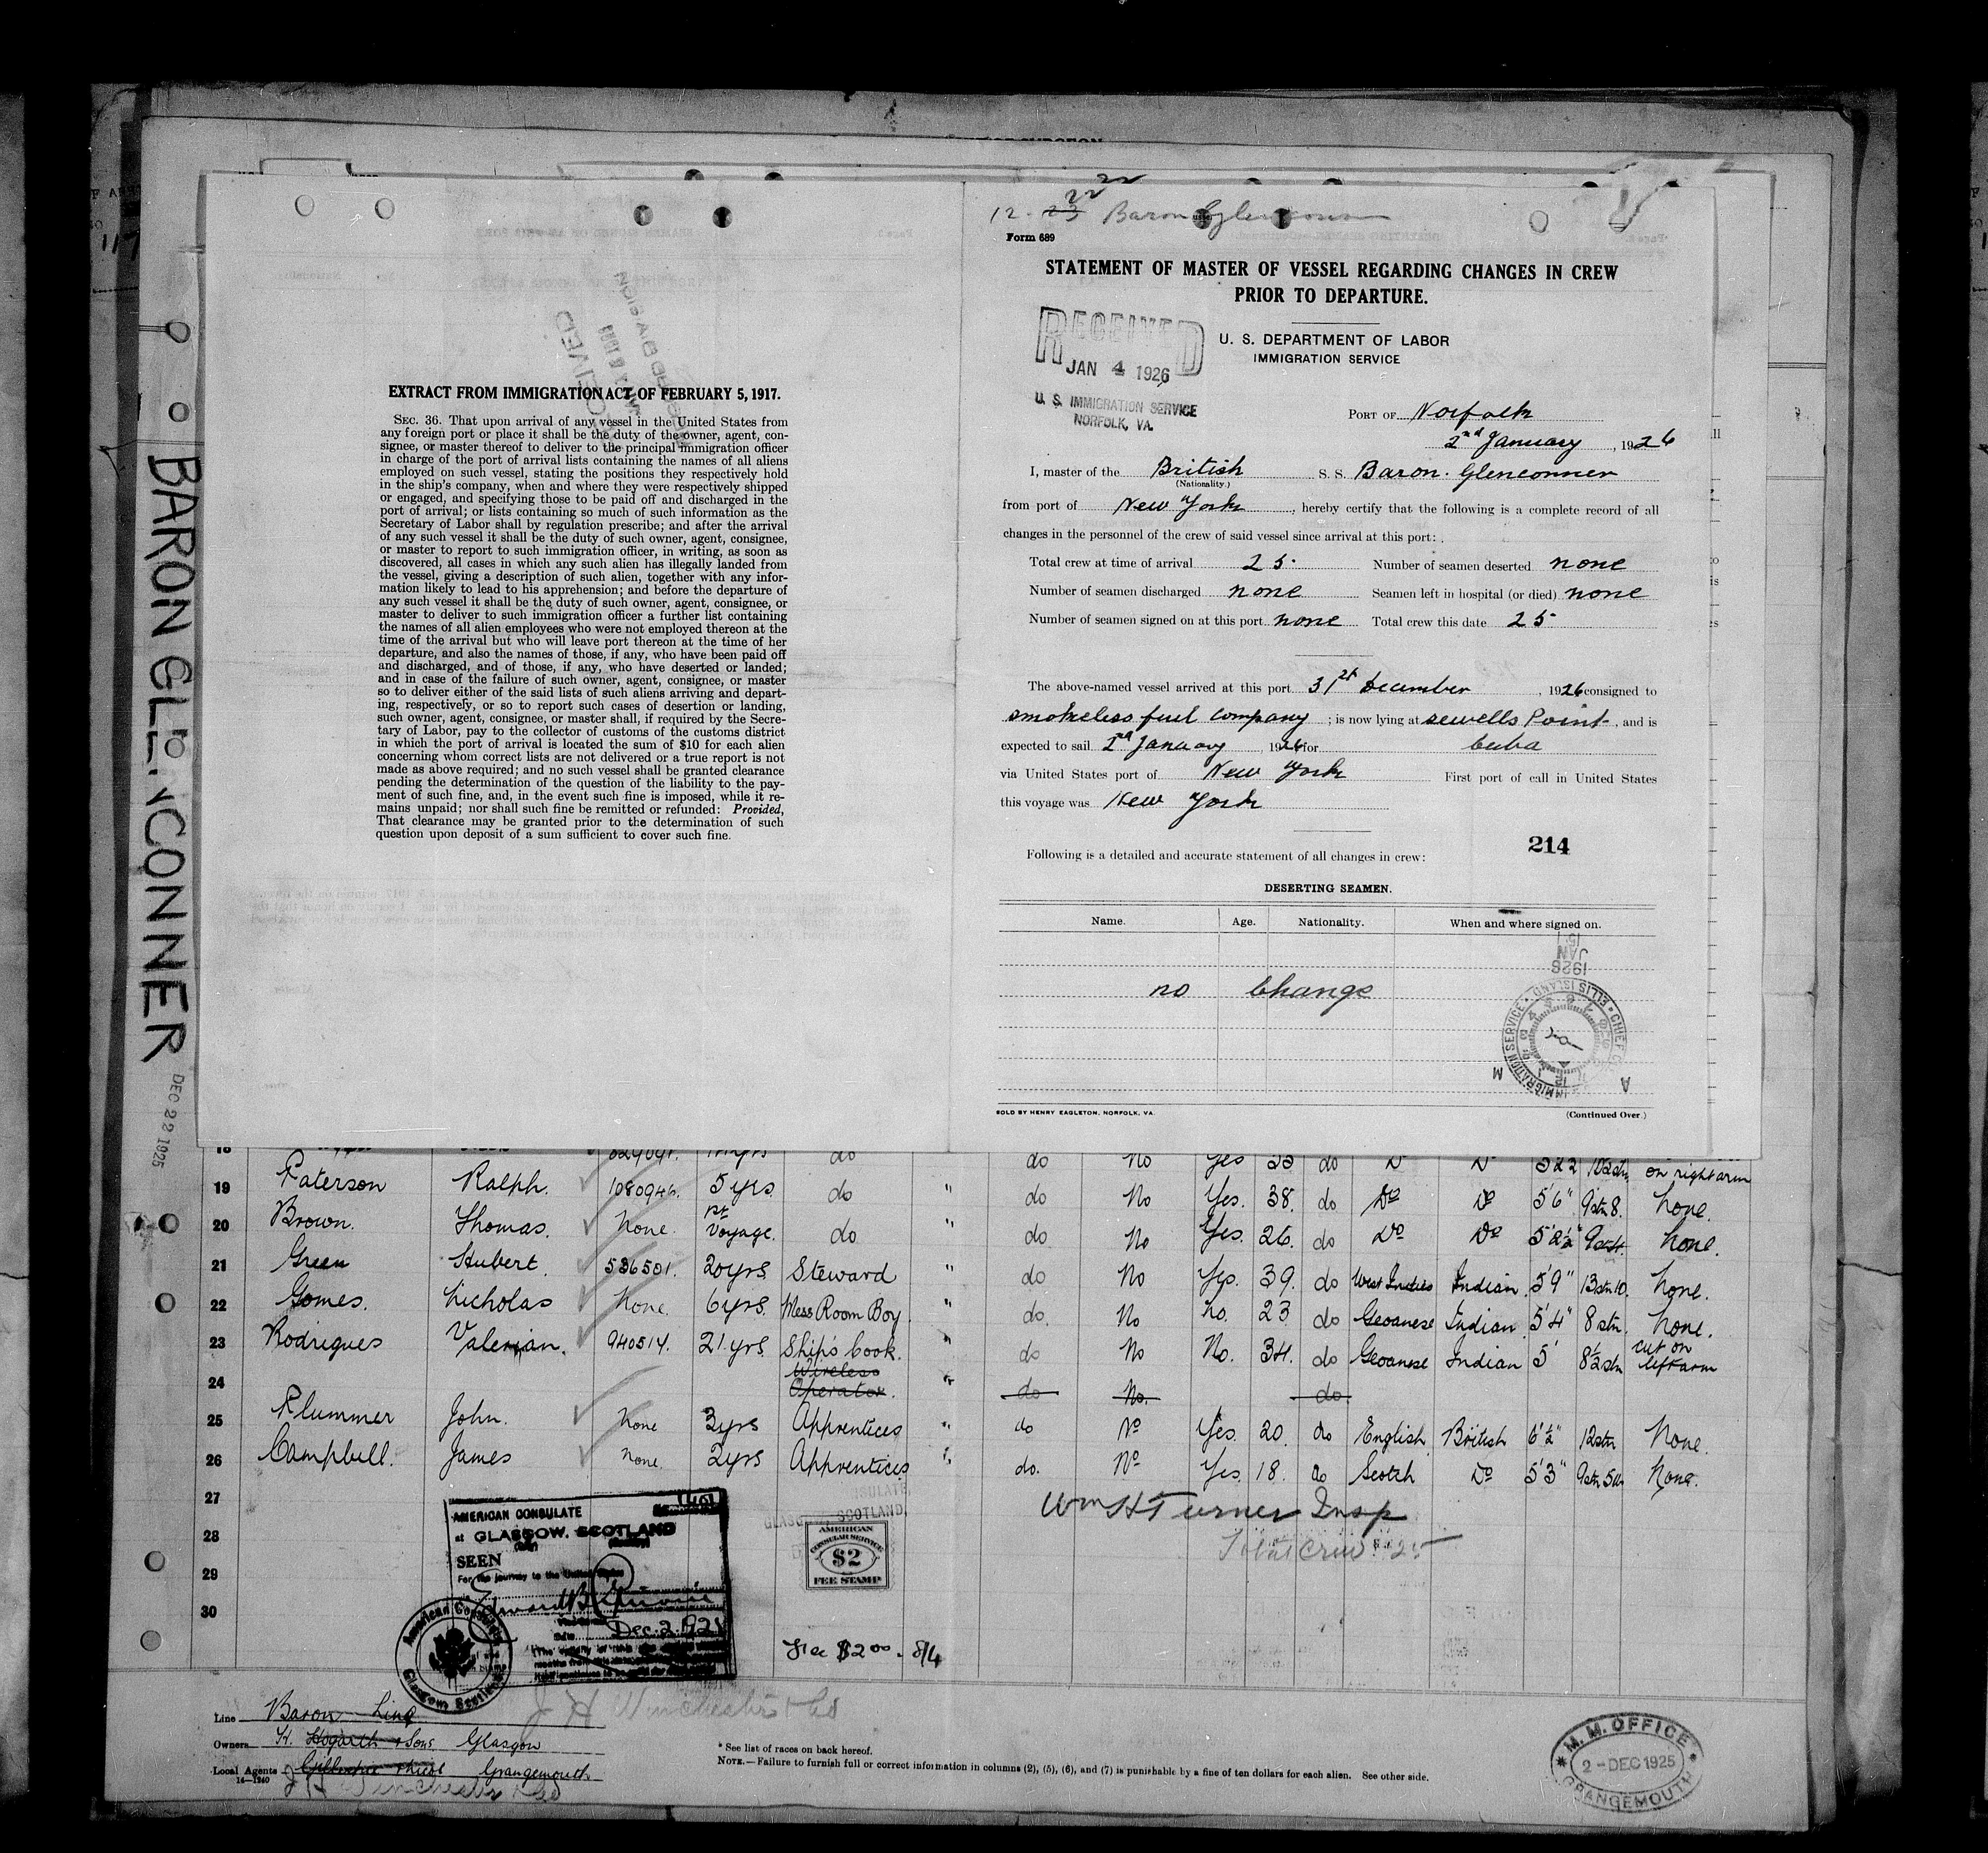 BARON GLENCONNER
DEC 22 1925
EXTRACT FROM IMMIGRATION ACT OF FEBRUARY 5, 1917.
SEC. 36. That upon arrival of any vessel in the United States from
any foreign port or place it shall be the duty of the owner, agent, con-
signee, or master thereof to deliver to the principal immigration officer
in charge of the port of arrival lists containing the names of all aliens
employed on such vessel, stating the positions they respectively hold
in the ship's company, when and where they were respectively shipped
or engaged, and specifying those to be paid off and discharged in the
port of arrival; or lists containing so much of such information as the
Secretary of Labor shall by regulation prescribe; and after the arrival
of any such vessel it shall be the duty of such owner, agent, consignee,
or master to report to such immigration officer, in writing, as soon as
discovered, all cases in which any such alien has illegally landed from
the vessel, giving a description of such alien, together with any infor-
mation likely to lead to his apprehension; and before the departure of
any such vessel it shall be the duty of such owner, agent, consignee, or
master to deliver to such immigration officer a further list containing
the names of all alien employees who were not employed thereon at the
time of the arrival but who will leave port thereon at the time of her
departure, and also the names of those, if any, who have been paid off
and discharged, and of those, if any, who have deserted or landed;
and in case of the failure of such owner, agent, consignee, or master
so to deliver either of the said lists of such aliens arriving and depart-
ing, respectively, or so to report such cases of desertion or landing,
such owner, agent, consignee, or master shall, if required by the Secre-
tary of Labor, pay to the collector of customs of the customs district
in which the port of arrival is located the sum of $10 for each alien
concerning whom correct lists are not delivered or a true report is not
made as above required; and no such vessel shall be granted clearance
pending the determination of the question of the liability to the pay-
ment of such fine, and, in the event such fine is imposed, while it re-
mains unpaid; nor shall such fine be remitted or refunded: Provided,
That clearance may be granted prior to the determination of such
question upon deposit of a sum sufficient to cover such fine.
12-23 22 Baron Glenconner
Form 689
STATEMENT OF MASTER OF VESSEL REGARDING CHANGES IN CREW
PRIOR TO DEPARTURE.
RECEIVED
JAN 4 1926
U. S. IMMIGRATION SERVICE
NORFOLK, VA.
U. S. DEPARTMENT OF LABOR
IMMIGRATION SERVICE
PORT OF Norfolk
2nd January, 1926
I, master of the British S. S. Baron Glenconner
(Nationality.)
from port of New York, hereby certify that the following is a complete record of all
changes in the personnel of the crew of said vessel since arrival at this port:
Total crew at time of arrival 25. Number of seamen deserted none
Number of seamen discharged none Seamen left in hospital (or died) none
Number of seamen signed on at this port none Total crew this date 25
The above-named vessel arrived at this port 31st December, 1926 consigned to
smokeless fuel company; is now lying at sewells Point, and is
expected to sail 2nd January 1926 for Cuba
via United States port of New York First port of call in United States
this voyage was New York
214
Following is a detailed and accurate statement of all changes in crew:
DESERTING SEAMEN.
Name. Age. Nationality. When and where signed on.
no Change
15
JAN
1926
IMMIGRATION SERVICE ELLIS ISLAND CHIEF
SOLD BY HENRY EAGLETON, NORFOLK, VA. (Continued Over.)
18 do do No Yes 33 do on right arm
19 Paterson Ralph. 1080946. 5 yrs. do " do No Yes. 38. do Do Do 5'6" 9stn 8. None.
20 Brown. Thomas. None. 1st Voyage. do " do No Yes. 26. do Do Do 5'2½" 9stn4. None.
21 Green Hubert. 536501. 20yrs. Steward " do No Yes. 39. do West Indies Indian 5'9" 13stn10. None.
22 Gomes. Nicholas None. 6yrs. Mess Room Boy " do. No No. 23 do Geoanese Indian 5'4" 8 stn. None.
23 Rodrigues Valerian. 940514. 21 yrs. Ship's Cook. " do No No. 34. do Geoanese Indian 5' 8½stn cut on left arm
24 Wireless Operator. " do No. do
25 Plummer John. None 3yrs Apprentices " do No Yes. 20. do English British 6'½" 12stn None.
26 Campbell. James None 2yrs Apprentices " do. No Yes. 18. do Scotch Do 5'3" 9stn 5lb None.
27
28
29
30
Wm H Turner Insp
Total Crew 25
AMERICAN CONSULATE
at GLASGOW, SCOTLAND
SEEN
For the journey to the United States
Dec. 2 192
American Consulate
Glasgow Scotland
GLASGOW, SCOTLAND,
AMERICAN
CONSULAR SERVICE
$2
FEE STAMP
Fee $2.00. 8/4
J H Winchester & Co
Line Baron Line
Owners H. Hogarth & Sons. Glasgow
Local Agents Grangemouth
14—1240
J H Winchester & Co
* See list of races on back hereof.
NOTE.—Failure to furnish full or correct information in columns (2), (5), (6), and (7) is punishable by a fine of ten dollars for each alien. See other side.
M. M. OFFICE
2 - DEC 1925
GRANGEMOUTH